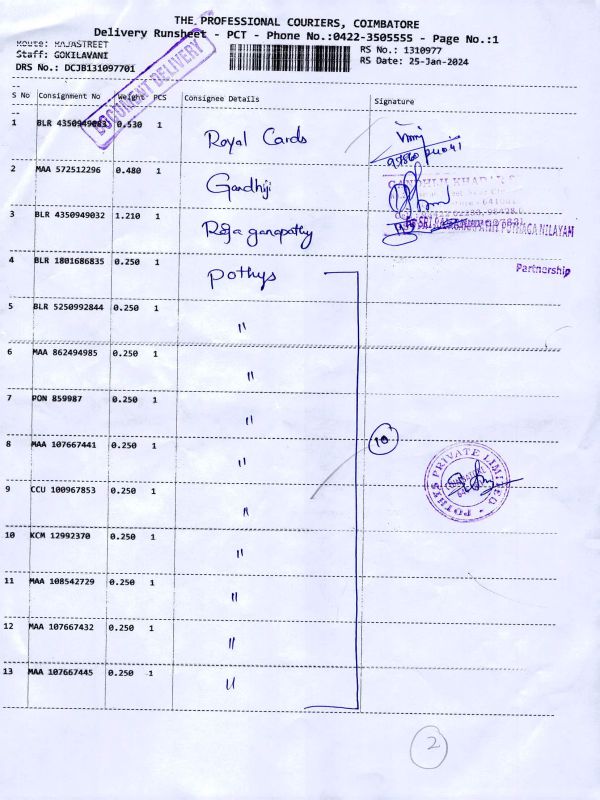 THE PROFESSIONAL COURIERS, COIMBATORE
Delivery Runsheet - PCT - Phone No.:0422-3505555 - Page No.:1
Route: RAJASTREET
RS No.: 1310977
Staff: GOKILAVANI
RS Date: 25-Jan-2024
DRS No.: DCJB131097701
DOCUMENT DELIVERY
S No Consignment No Weight PCS Consignee Details Signature
1 BLR 4350949083 0.530 1 Royal Cards
2 MAA 572512296 0.480 1 Gandhiji
3 BLR 4350949032 1.210 1 Roja ganapathy
4 BLR 1801686835 0.250 1 Pothys
Partnership
5 BLR 5250992844 0.250 1 "
6 MAA 862494985 0.250 1 "
7 PON 859987 0.250 1 "
10
8 MAA 107667441 0.250 1 "
POTHYS PRIVATE LIMITED
9 CCU 100967853 0.250 1 "
10 KCM 12992370 0.250 1 "
11 MAA 108542729 0.250 1 "
12 MAA 107667432 0.250 1 "
13 MAA 107667445 0.250 1 "
2